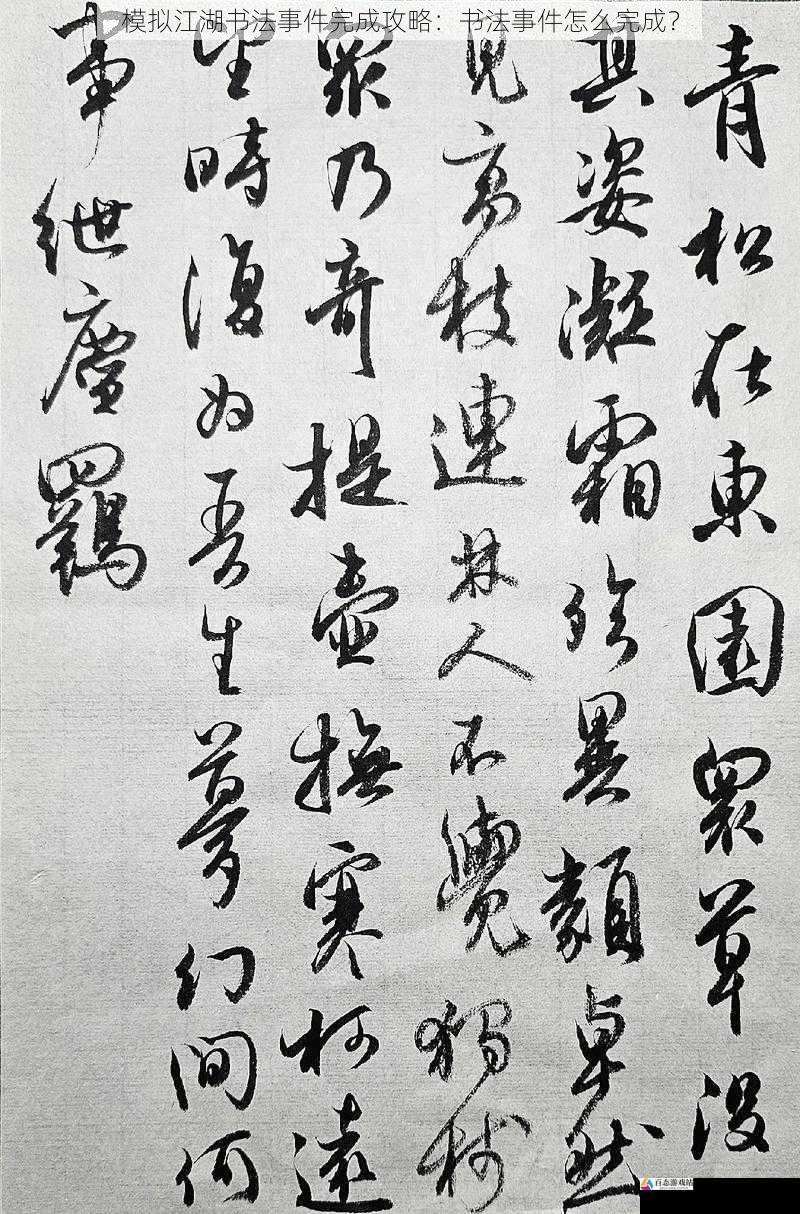 模拟江湖书法事件完成攻略：书法事件怎么完成？
青松在東園眾草没
其姿凝霜殄異類卓然
見高枝連林人不覺獨樹
眾乃奇提壺撫寒柯遠
望時復為吾生夢幻間何
事紲塵羈
百态游戏站